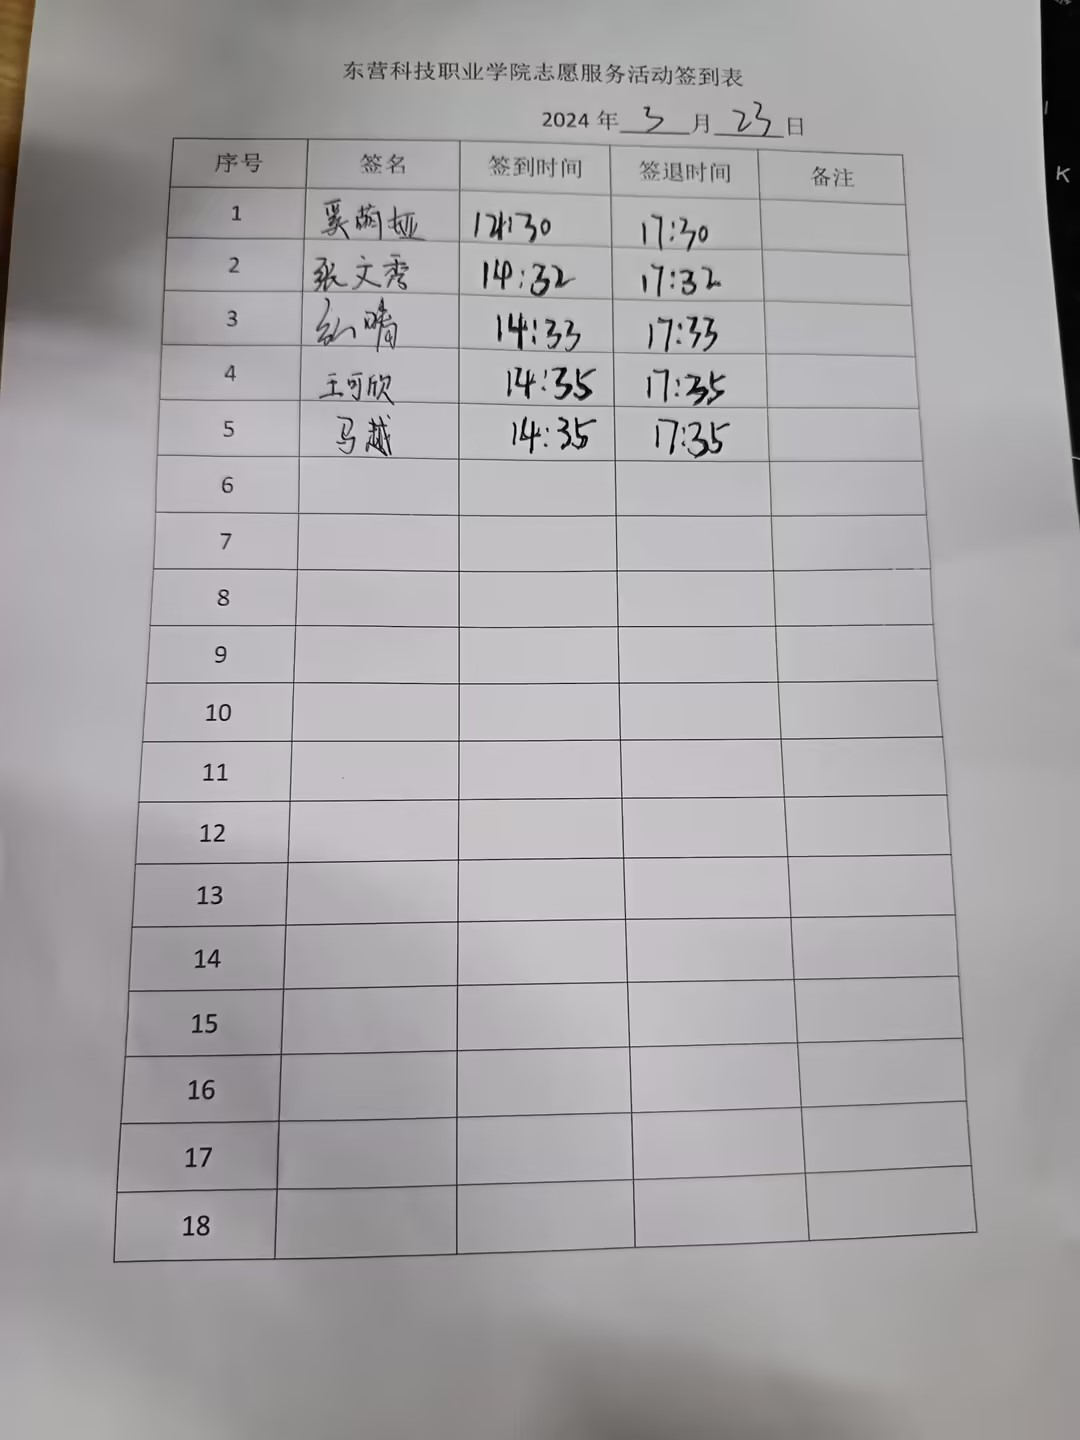 东营科技职业学院志愿服务活动签到表
2024 年 3 月 23 日
序号 签名 签到时间 签退时间 备注
1 奚萌娅 14:30 17:30
2 张文秀 14:32 17:32
3 孙晴 14:33 17:33
4 王可欣 14:35 17:35
5 马越 14:35 17:35
6
7
8
9
10
11
12
13
14
15
16
17
18
K